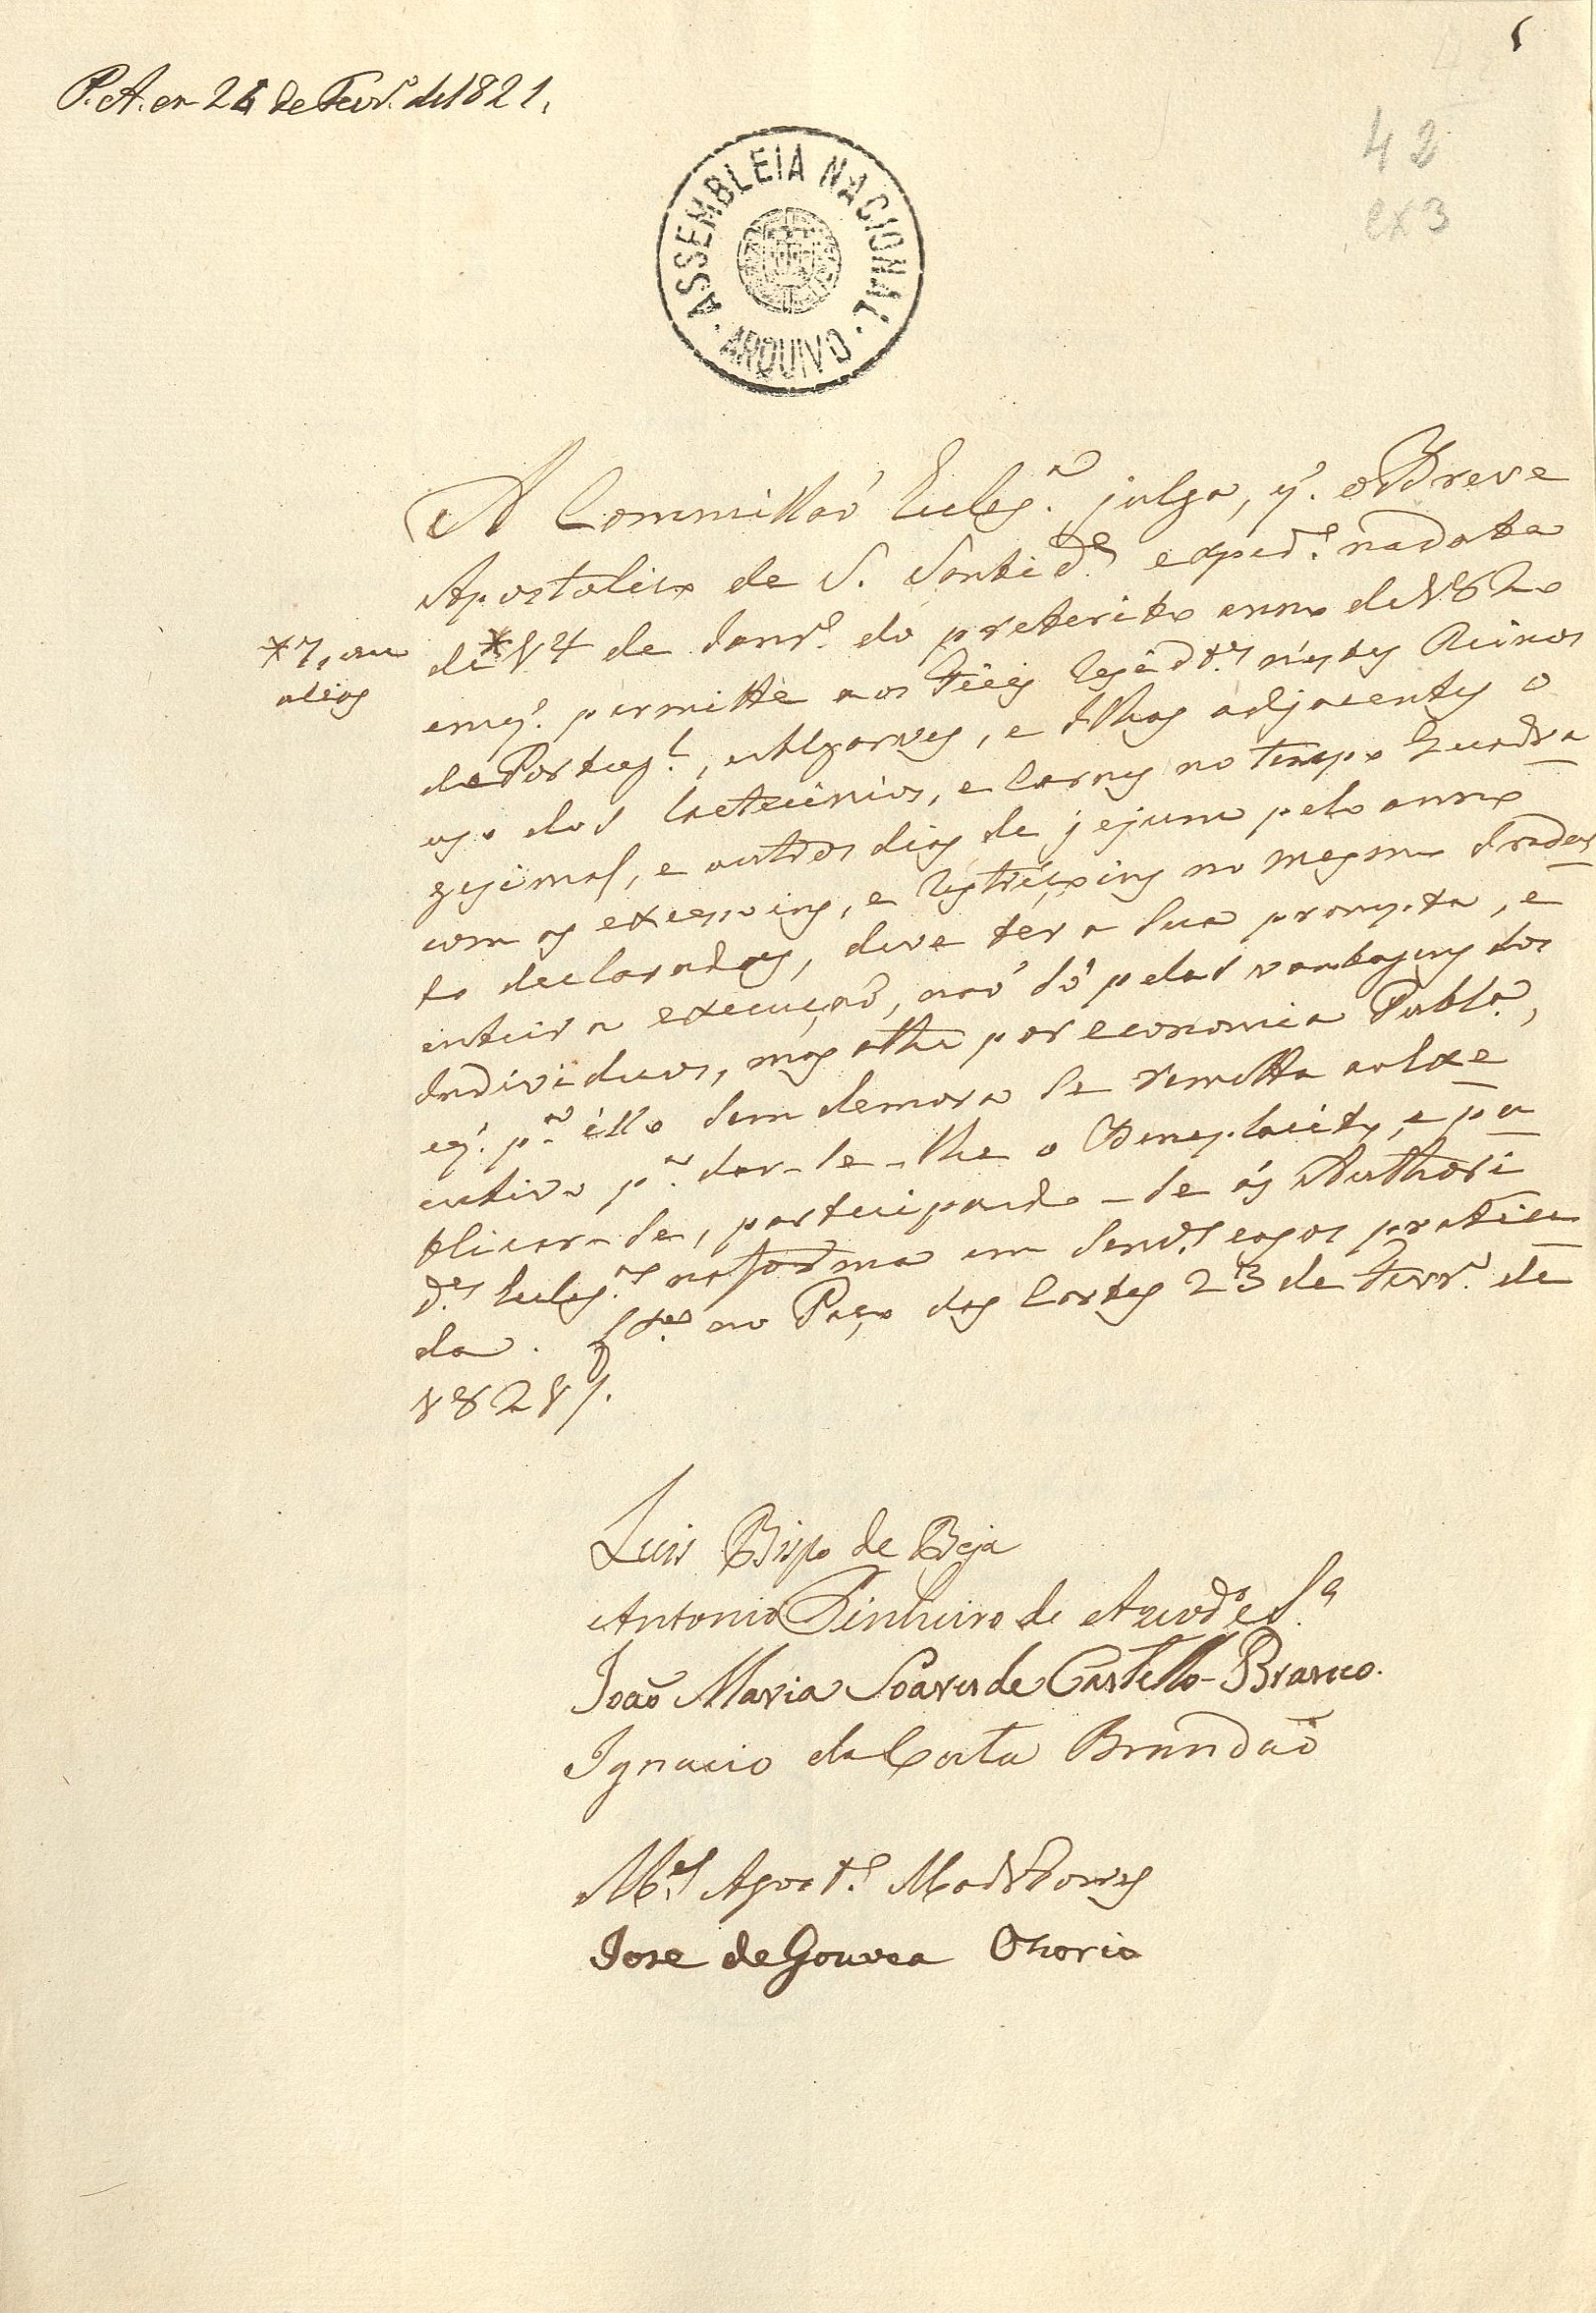 P. A. em 24 de Fevr.º de 1821.
42
ex 3
ASSEMBLEIA NACIONAL
ARQUIVO
A Commissaõ Eccles.ª julga, q̃. o Breve
Apostolico de S. Santid.e exped.º na data
de * 14 de Janr.º do preterito anno de 1820
* 7, ou
alias
em q̃. permitte aos Fieis resid.tes n'estes Reinos
de Portug.l, e Algarves, e Ilhas adjacentes o
uso dos lacticinios, e Carnes no tempo Quadra
gesimal, e outros dias de jejum pelo anno
com as excepçoins, e restricçoins no mesmo
to declaradas, deve ter a sua prompta, e
inteira execuçaõ, naõ só pelas vantagens dos
Individuos, mas athe por economia Publ.ca,
e q̃. p.ª isso sem demora se remetta ao Exe
cutivo p.ª dar-se-lhe o Beneplacito, e pu
blicar-se, participando-se ás Authori
d.es Eccles.as na forma em sem.es casos pratica
da. no Paço das Cortes 23 de Fevr.º de
1821.
Luis Bispo de Beja
Antonio Pinheiro de Azevd.º e S.ª
Joaõ Maria Soares de Castello-Branco.
Ignacio da Costa Brandaõ
M.el Agost.º Mad.ra Torres
Jose de Gouvea Ozorio